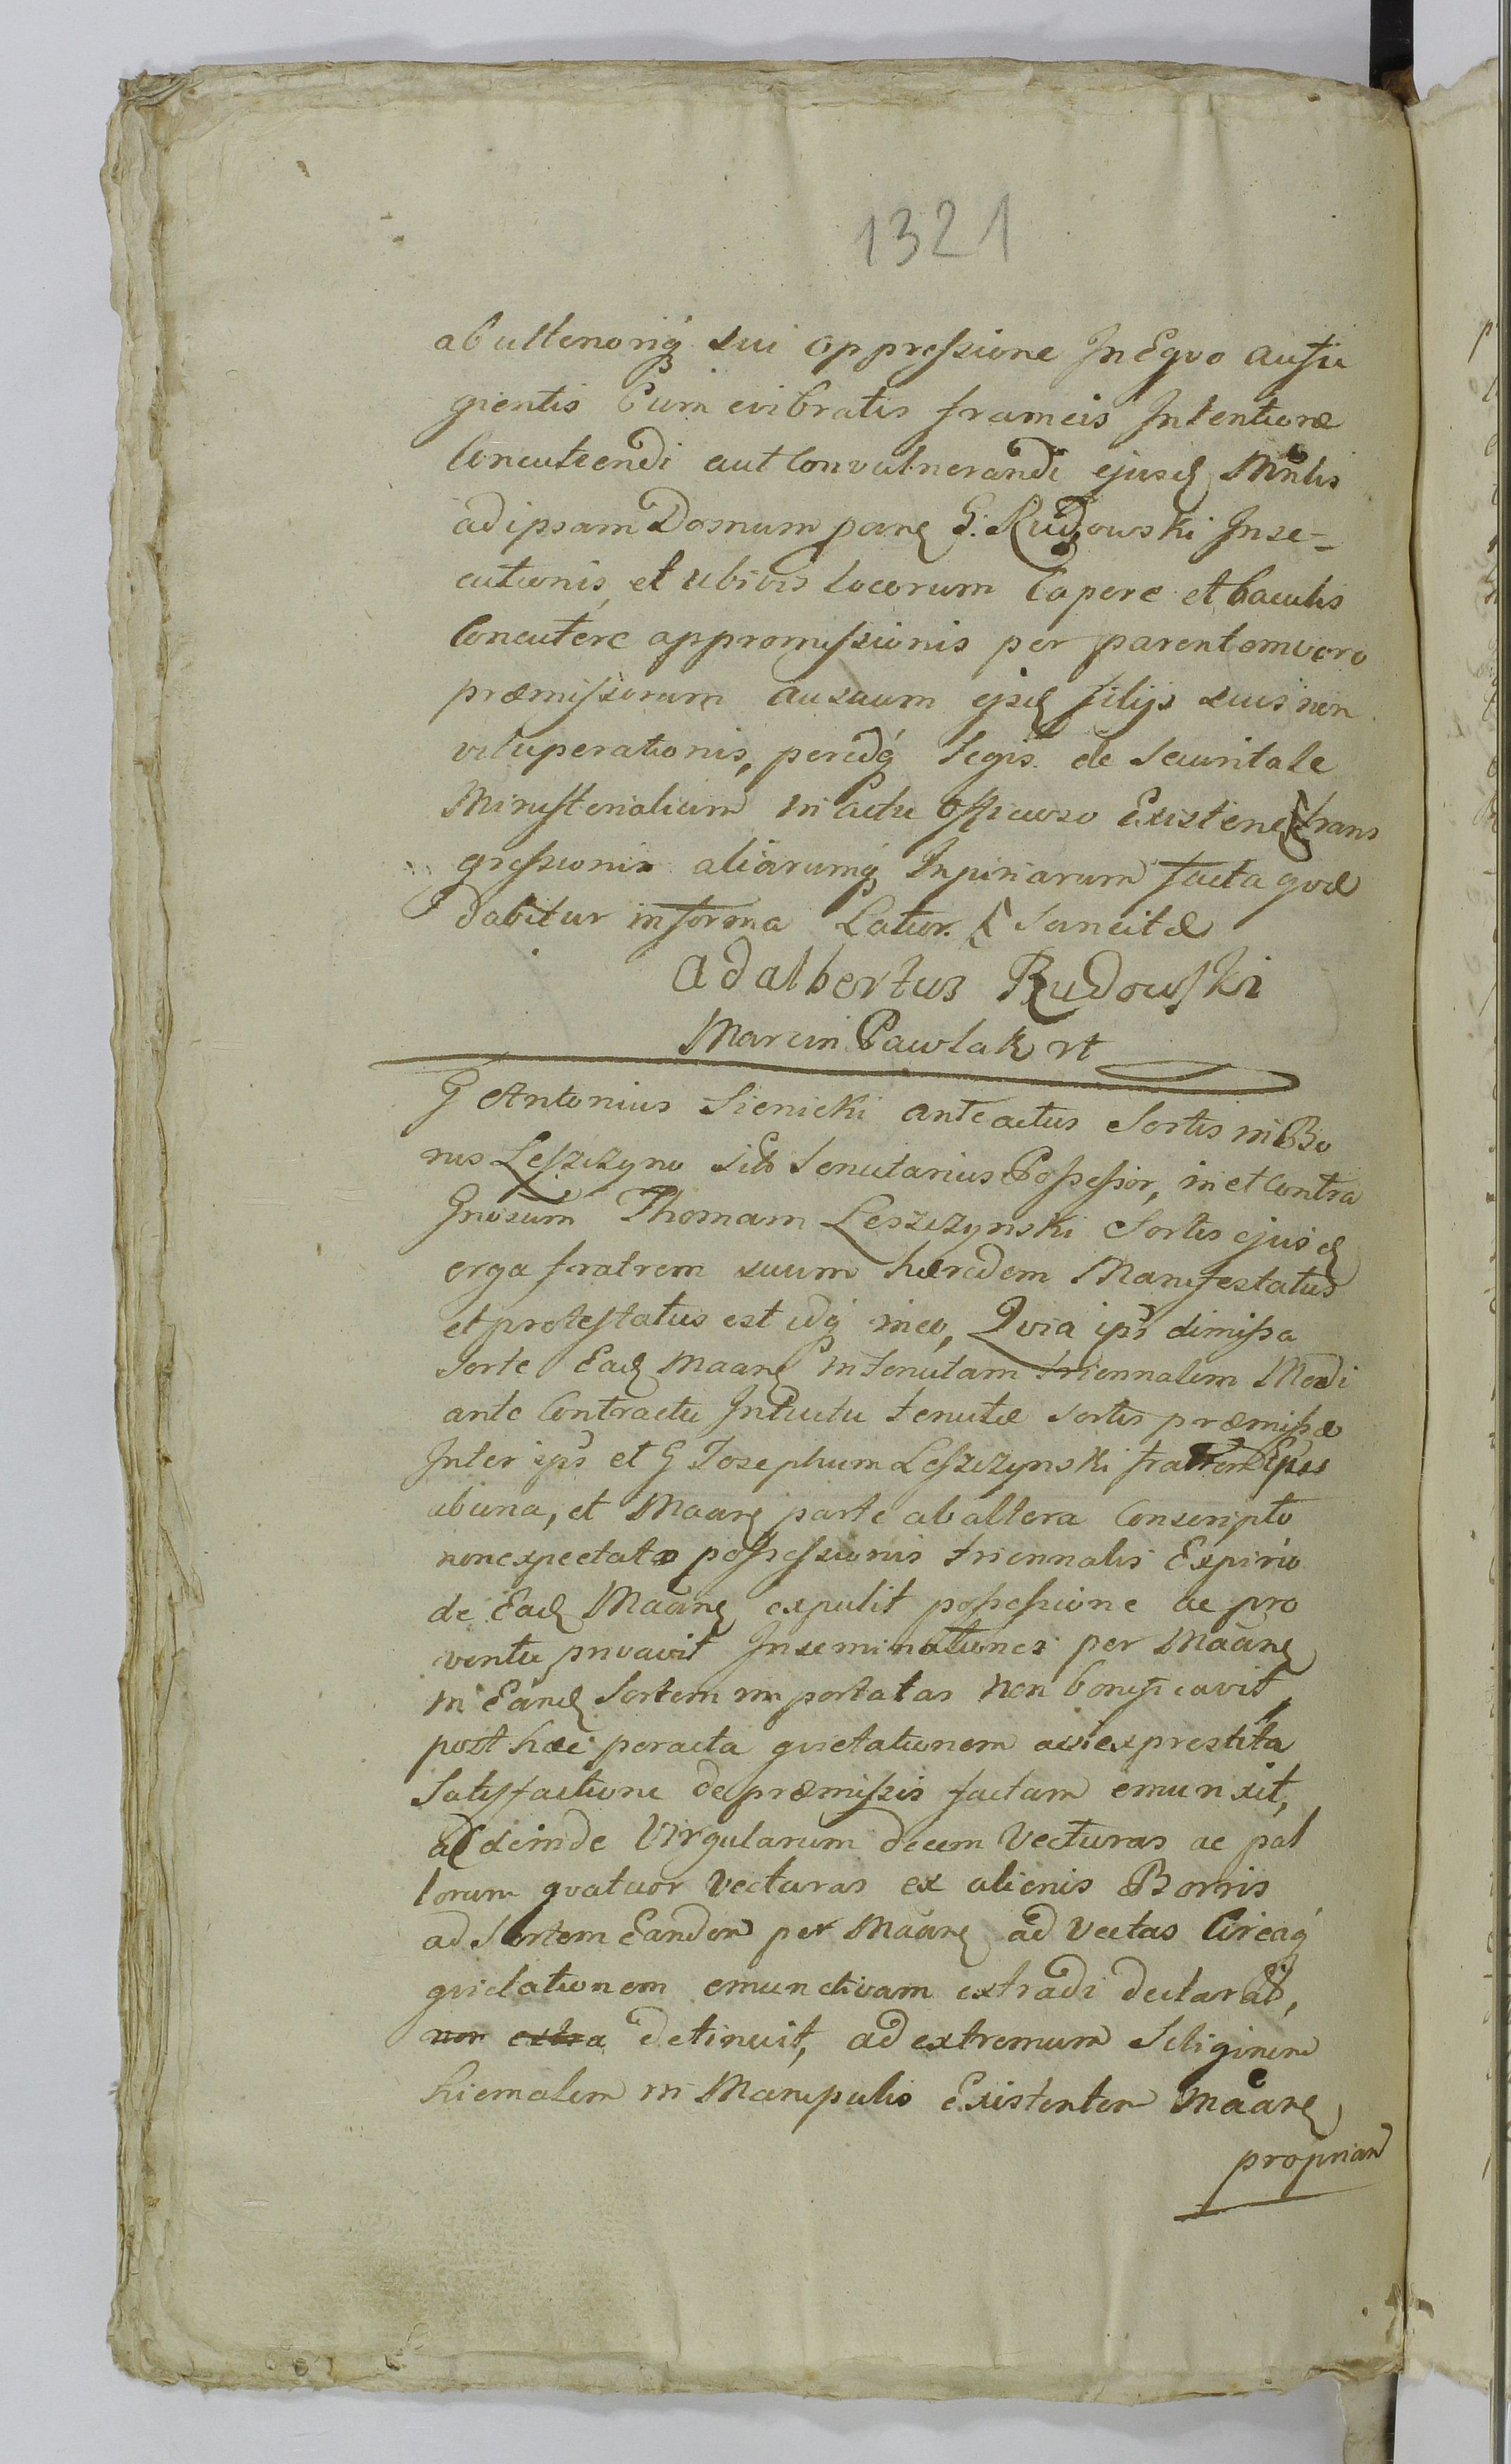 1321
ab ulteriorig sui oppressione In Eqvo aufu
gientis Cum evibratis frameis Intentione
Concutiendi aut Convulnerandi ejusd Mnlis
ad ipsam Domum pane G. Rudowski Inse-
cutionis, et ubivis locorum Capere et baculis
Concutere appromissionis per parentem vero
præmissorum ausuum ejsd filijs suis non
vituperationis, peridq Legis de Securitate
Ministerialium in actu officioso Existenc trans
gressionis aliarumq Injuriarum facta qvæ
dabitur in forma Latior. Sancitæ
Adalbertus Rudowski
Marcin Pawlak rt
G Antonius Sienicki anteactus Sortis in Bo
nis Leszczyno Sito Tenutarius Possessior, in et Contra
Gnosum Thomam Leszczynski Sortis ejusd
erga fratrem suum hæredem Manifestatus
et protestatus est idq in eo, Qvia ips dimissa
Sorte Ead Maane in tenutam triennalem Medi
ante Contractu Intuitu tenutæ sortis præmissæ
Inter ips et G Josephum Leszczynski fratrem Ejus
ab una, et Maane parte ab altera Conscripto
non expectato possessionis triennalis Expirio
de Ead Maane expulit possessione ac pro
ventu privavit Inseminationes per Maane
in Eand Sortem importatas non bonificavit,
post hæc peracta qvietationem acsi ex prestita
Satisfactione de præmissis factam emunxit,
ac deinde Virgularum decem Vecturas ac pal
lorum qvatuor Vecturas ex alienis Borris
ad Sortem Eandem per Maane ad Vectas Circaq
qvietationem emunctivam extradi declarat,
non extra detinuit, ad extremum Siliginem
hiemalem in Manipulis Existentem Maane
propriam